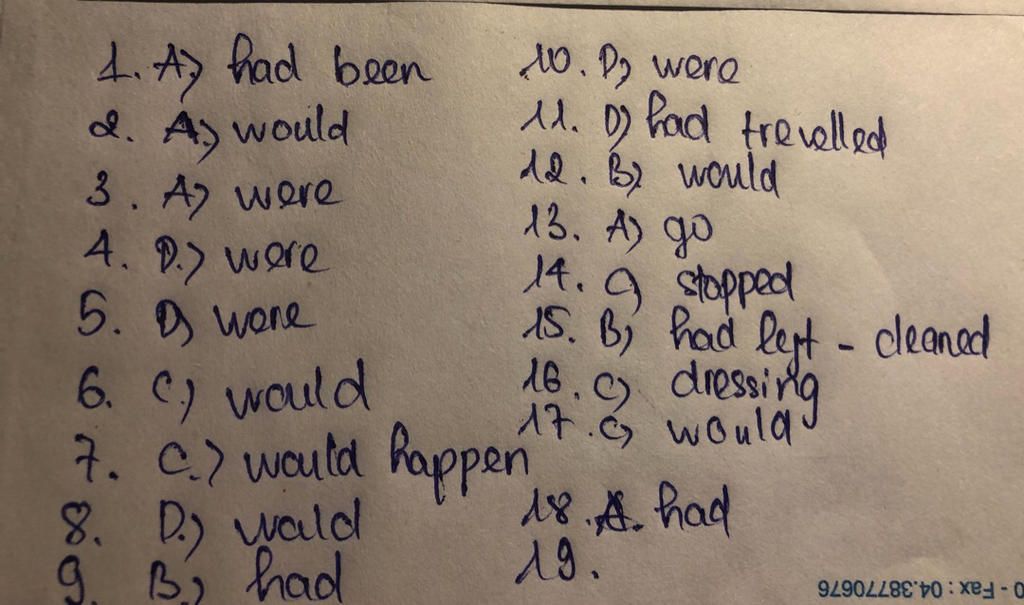 1. A) had been
2. A) would
3. A) were
4. D.) were
5. D) were
6. C.) would
7. C.) would happen
8. D.) wald
9. B.) had
10. D) were
11. D) had trevelled
12. B) would
13. A) go
14. C) stopped
15. B) had left - cleaned
16. C) dressing
17. C) would
18. A. had
19.
0 - Fax : 04.38770676